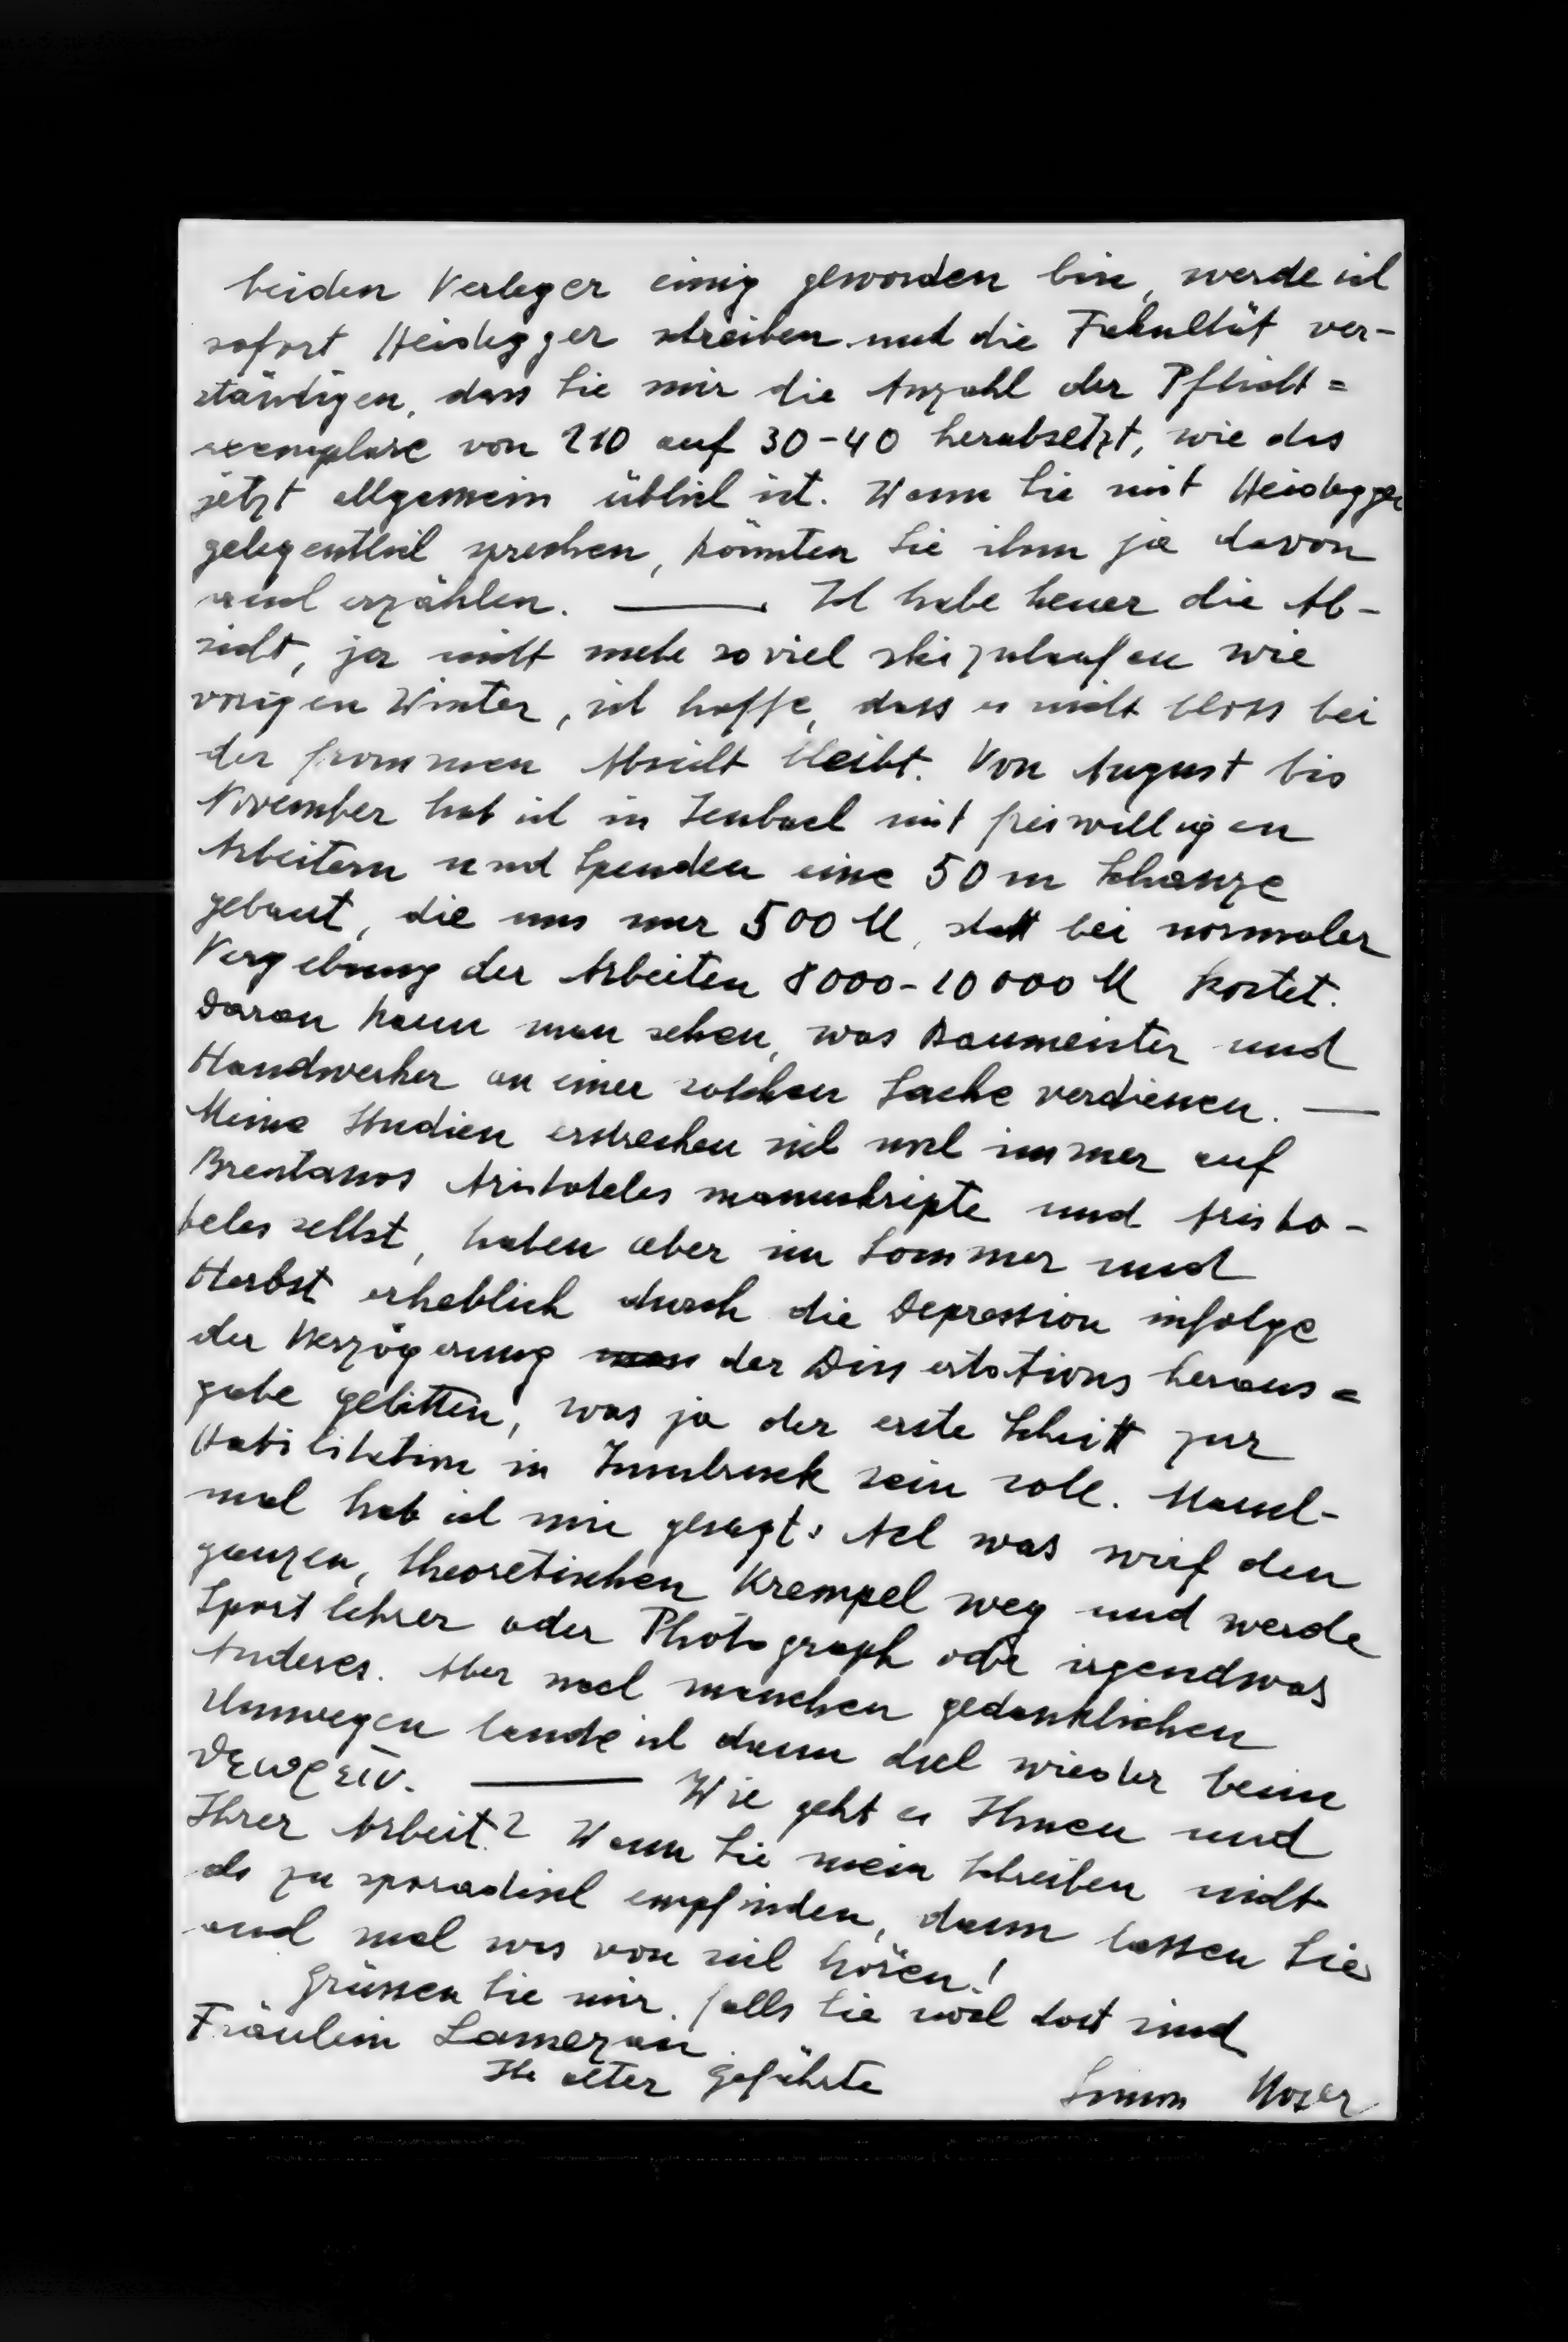 beiden Verleger einig geworden bin, werde ich
sofort Heidegger schreiben und die Fakultät ver-
ständigen, dass Sie mir die Anzahl der Pflicht=
exemplare von 210 auf 30-40 herabsetzt, wie das
jetzt allgemein üblich ist. Wenn Sie mit Heidegger
gelegentlich sprechen, könnten Sie ihm ja davon
auch erzählen. — Ich habe heuer die Ab-
sicht, ja nicht mehr soviel skizulaufen wie
vorigen Winter, ich hoffe, dass es nicht bloss bei
der frommen Absicht bleibt. Von August bis
November hab ich in Jenbach mit freiwilligen
Arbeitern und Spenden eine 50 m Schanze
gebaut, die uns nur 500 M, statt bei normaler
Vergebung der Arbeiten 8000-10000 M kostet.
Daran kann man sehen, was Baumeister und
Handwerker an einer solchen Sache verdienen. —
Meine Studien erstrecken sich noch immer auf
Brentanos Aristoteles manuskripte und Aristo-
teles selbst, haben aber im Sommer und
Herbst erheblich durch die Depression infolge
der Verzögerung der Dissertations heraus=
gabe gelitten, was ja der erste Schritt zur
Habilitation in Innsbruck sein soll. Manch-
mal hab ich mir gesagt: Ach was wirf den
ganzen, theoretischen Krempel weg und werde
Sportlehrer oder Photograph oder irgendwas
Anderes. Aber nach manchen gedanklichen
Umwegen lande ich dann doch wieder beim
θεωρεῖν. — Wie geht es Ihnen und
Ihrer Arbeit? Wenn Sie mein Schreiben nicht
als zu sporadisch empfinden, dann lassen Sie
auch mal was von sich hören!
Grüssen Sie mir, falls Sie noch dort sind
Fräulein
Ihr alter Gefährte Simon Moser